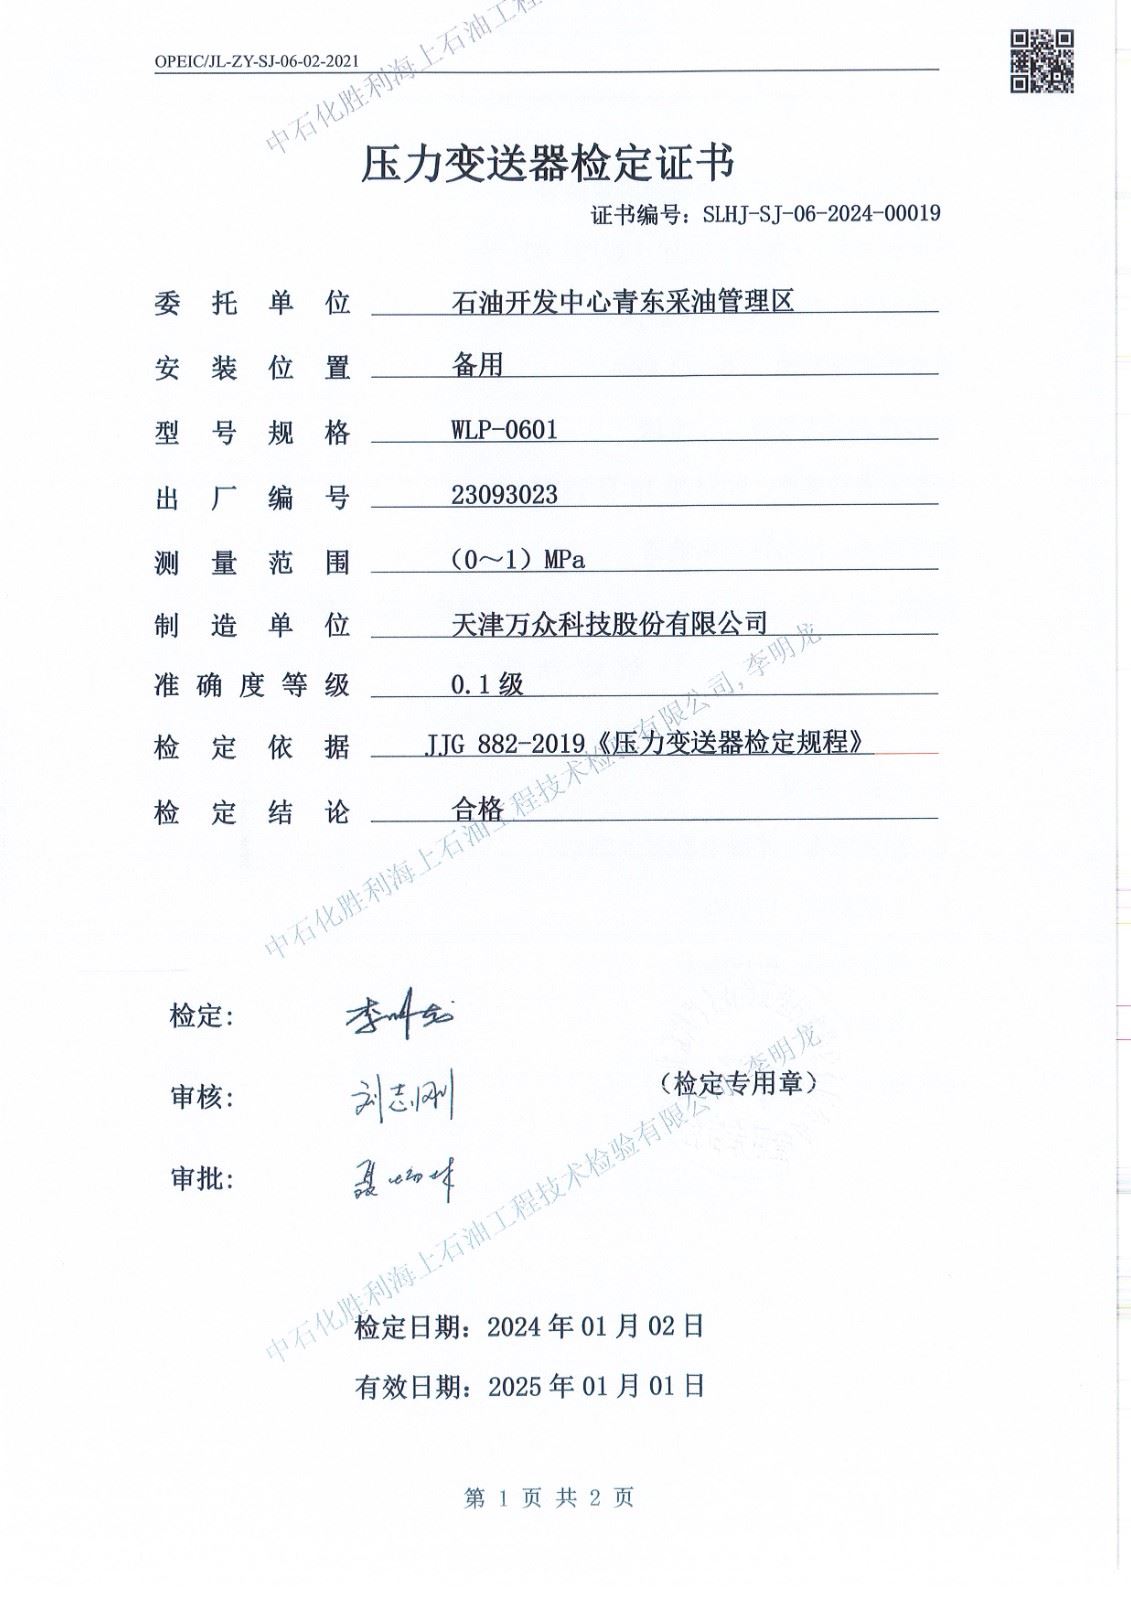 OPEIC/JL-ZY-SJ-06-02-2021
中石化胜利海上石油工程
压力变送器检定证书
证书编号：SLHJ-SJ-06-2024-00019
委托单位 石油开发中心青东采油管理区
安装位置 备用
型号规格 WLP-0601
出厂编号 23093023
测量范围 （0～1）MPa
制造单位 天津万众科技股份有限公司
准确度等级 0.1级
检定依据 JJG 882-2019《压力变送器检定规程》
检定结论 合格
中石化胜利海上石油工程技术检验有限公司, 李明龙
检定： 李明龙
审核： 刘志刚
（检定专用章）
审批：
中石化胜利海上石油工程技术检验有限公司, 李明龙
检定日期：2024年01月02日
有效日期：2025年01月01日
第 1 页 共 2 页